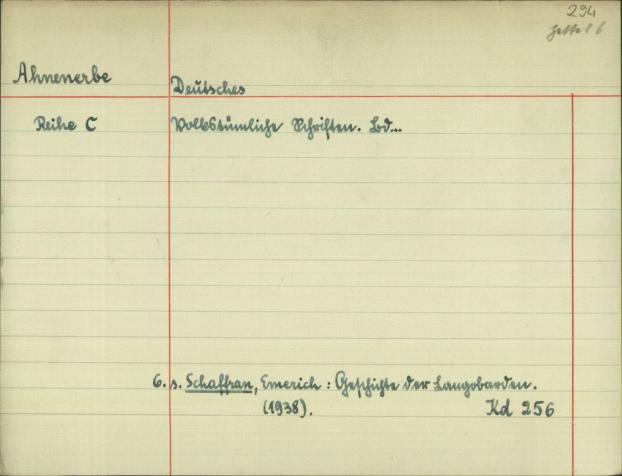 294
Zettel 6
Ahnenerbe Deutsches
Reihe C Volkstümliche Schriften. Bd...
6. s. Schaffran, Emerich: Geschichte der Langobarden.
(1938). Kd 256